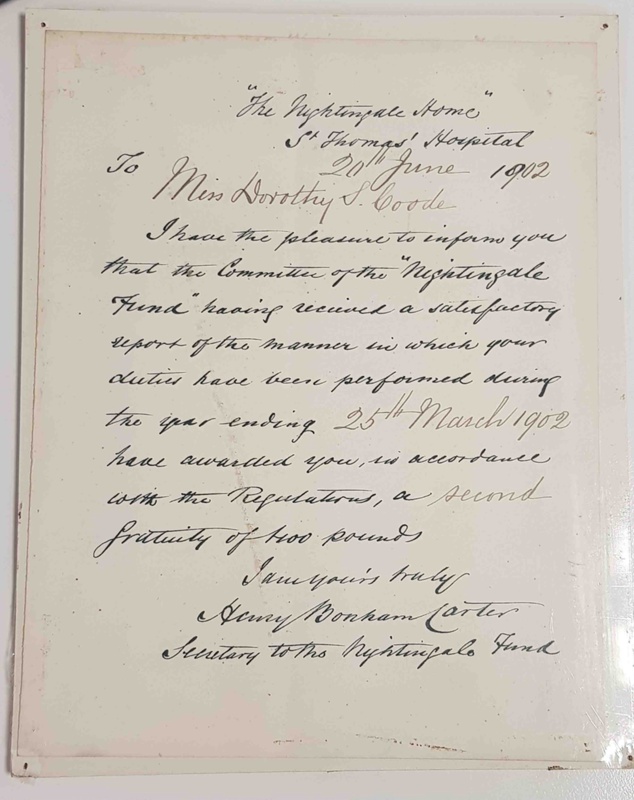 "The Nightingale Home"
St Thomas' Hospital
20th June 1902
To
Miss Dorothy S. Coode
I have the pleasure to inform you
that the Committee of the "Nightingale
Fund" having recieved a satisfactory
report of the manner in which your
duties have been performed during
the year ending 25th March 1902
have awarded you, in accordance
with the Regulations, a second
Gratuity of two pounds
I am yours truly
Henry Bonham Carter
Secretary to the Nightingale Fund